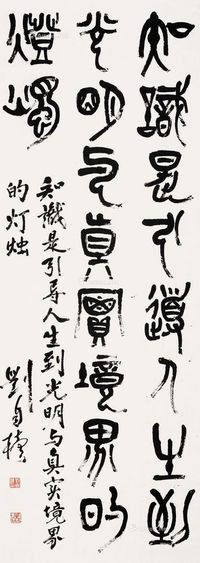 知識是引導人生到
光明与真實境界的
燈燭
知識是引导人生到光明与真实境界
的灯烛
劉自櫝